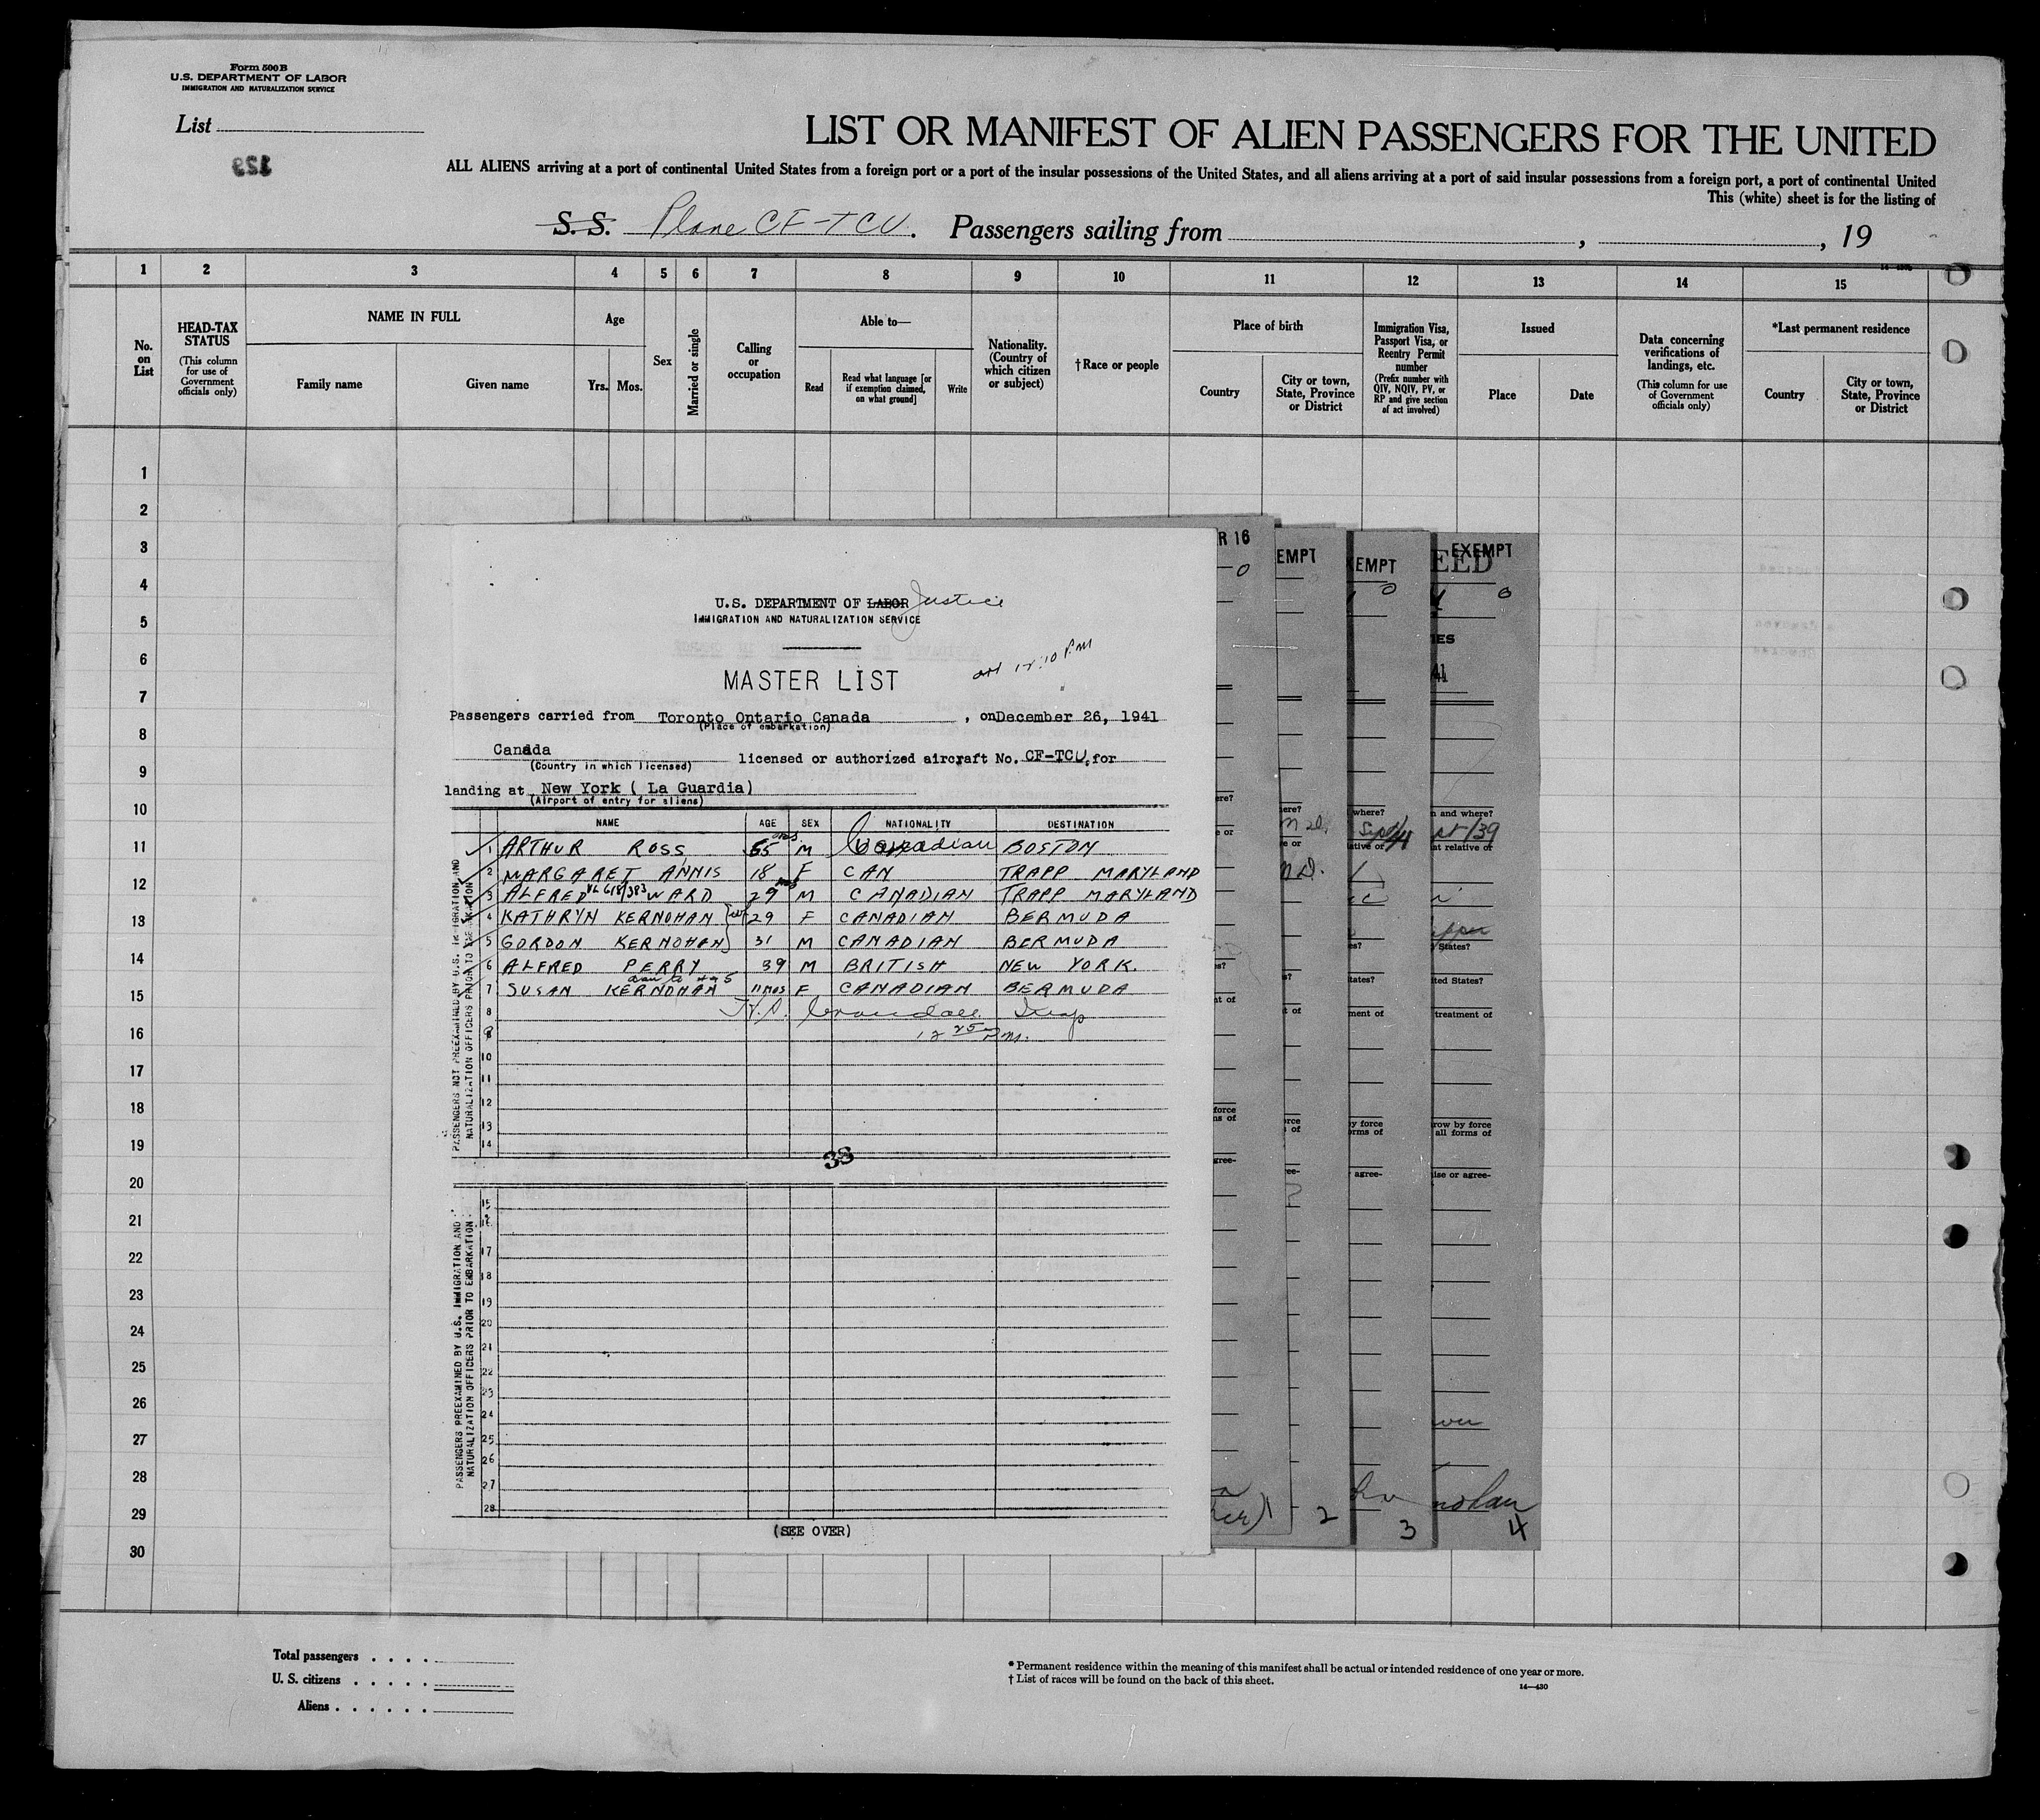 Form 500 B
U.S. DEPARTMENT OF LABOR
IMMIGRATION AND NATURALIZATION SERVICE
List
129
LIST OR MANIFEST OF ALIEN PASSENGERS FOR THE UNITED
ALL ALIENS arriving at a port of continental United States from a foreign port or a port of the insular possessions of the United States, and all aliens arriving at a port of said insular possessions from a foreign port, a port of continental United
This (white) sheet is for the listing of
S. S. Plane CF-TCU. Passengers sailing from , , 19
1 2 3 4 5 6 7 8 9 10 11 12 13 14 15
No. on List
HEAD-TAX STATUS (This column for use of Government officials only)
NAME IN FULL
Family name Given name
Age
Yrs. Mos.
Sex
Married or single
Calling or occupation
Able to—
Read
Read what language [or if exemption claimed, on what ground]
Write
Nationality. (Country of which citizen or subject)
† Race or people
Place of birth
Country
City or town, State, Province or District
Immigration Visa, Passport Visa, or Reentry Permit number (Prefix number with QIV, NQIV, PV, or RP and give section of act involved)
Issued
Place Date
Data concerning verifications of landings, etc. (This column for use of Government officials only)
*Last permanent residence
Country
City or town, State, Province or District
1
2
3
4
5
6
7
8
9
10
11
12
13
14
15
16
17
18
19
20
21
22
23
24
25
26
27
28
29
30
U.S. DEPARTMENT OF LABOR Justice
IMMIGRATION AND NATURALIZATION SERVICE
MASTER LIST
arr 12:10 P.M
Passengers carried from Toronto Ontario Canada , on December 26, 1941
(Place of embarkation)
Canada licensed or authorized aircraft No. CF-TCU, for
(Country in which licensed)
landing at New York ( La Guardia)
(Airport of entry for aliens)
NAME AGE SEX NATIONALITY DESTINATION
1 ARTHUR ROSS 65 M Canadian BOSTON
2 MARGARET ANNIS 18 F CAN TRAPP MARYLAND
3 ALFRED WARD 29 M CANADIAN TRAPP MARYLAND
4 KATHRYN KERNOHAN 29 F CANADIAN BERMUDA
5 GORDON KERNOHAN 31 M CANADIAN BERMUDA
6 ALFRED PERRY 39 M BRITISH NEW YORK.
7 SUSAN KERNOHAN 11 MOS F CANADIAN BERMUDA
8
9 12 25 P.M.
10
11
12
13
14
PASSENGERS NOT PREEXAMINED BY U.S. IMMIGRATION AND NATURALIZATION OFFICERS PRIOR TO EMBARKATION
38
15
16
17
18
19
20
21
22
23
24
25
26
27
28
PASSENGERS PREEXAMINED BY U.S. IMMIGRATION AND NATURALIZATION OFFICERS PRIOR TO EMBARKATION.
(SEE OVER)
R 16
EMPT
EMPT
EXEMPT
EED
IES
41
ere?
here?
where?
n and where?
e or
e or
lative or
at relative or
States?
tates?
ited States?
t of
t of
ment of
treatment of
force
ns of
orce
of
y force
orms of
row by force
all forms of
gree-
ee-
agree-
ise or agree-
1
2
3
4
Total passengers . . . .
U. S. citizens . . . . .
Aliens . . . . . .
* Permanent residence within the meaning of this manifest shall be actual or intended residence of one year or more.
† List of races will be found on the back of this sheet.
14—430